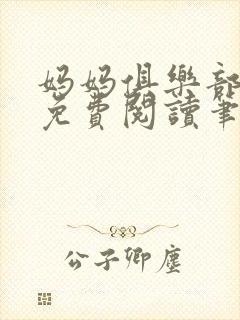 妈妈俱樂部
免費閱讀筆
公子卿塵